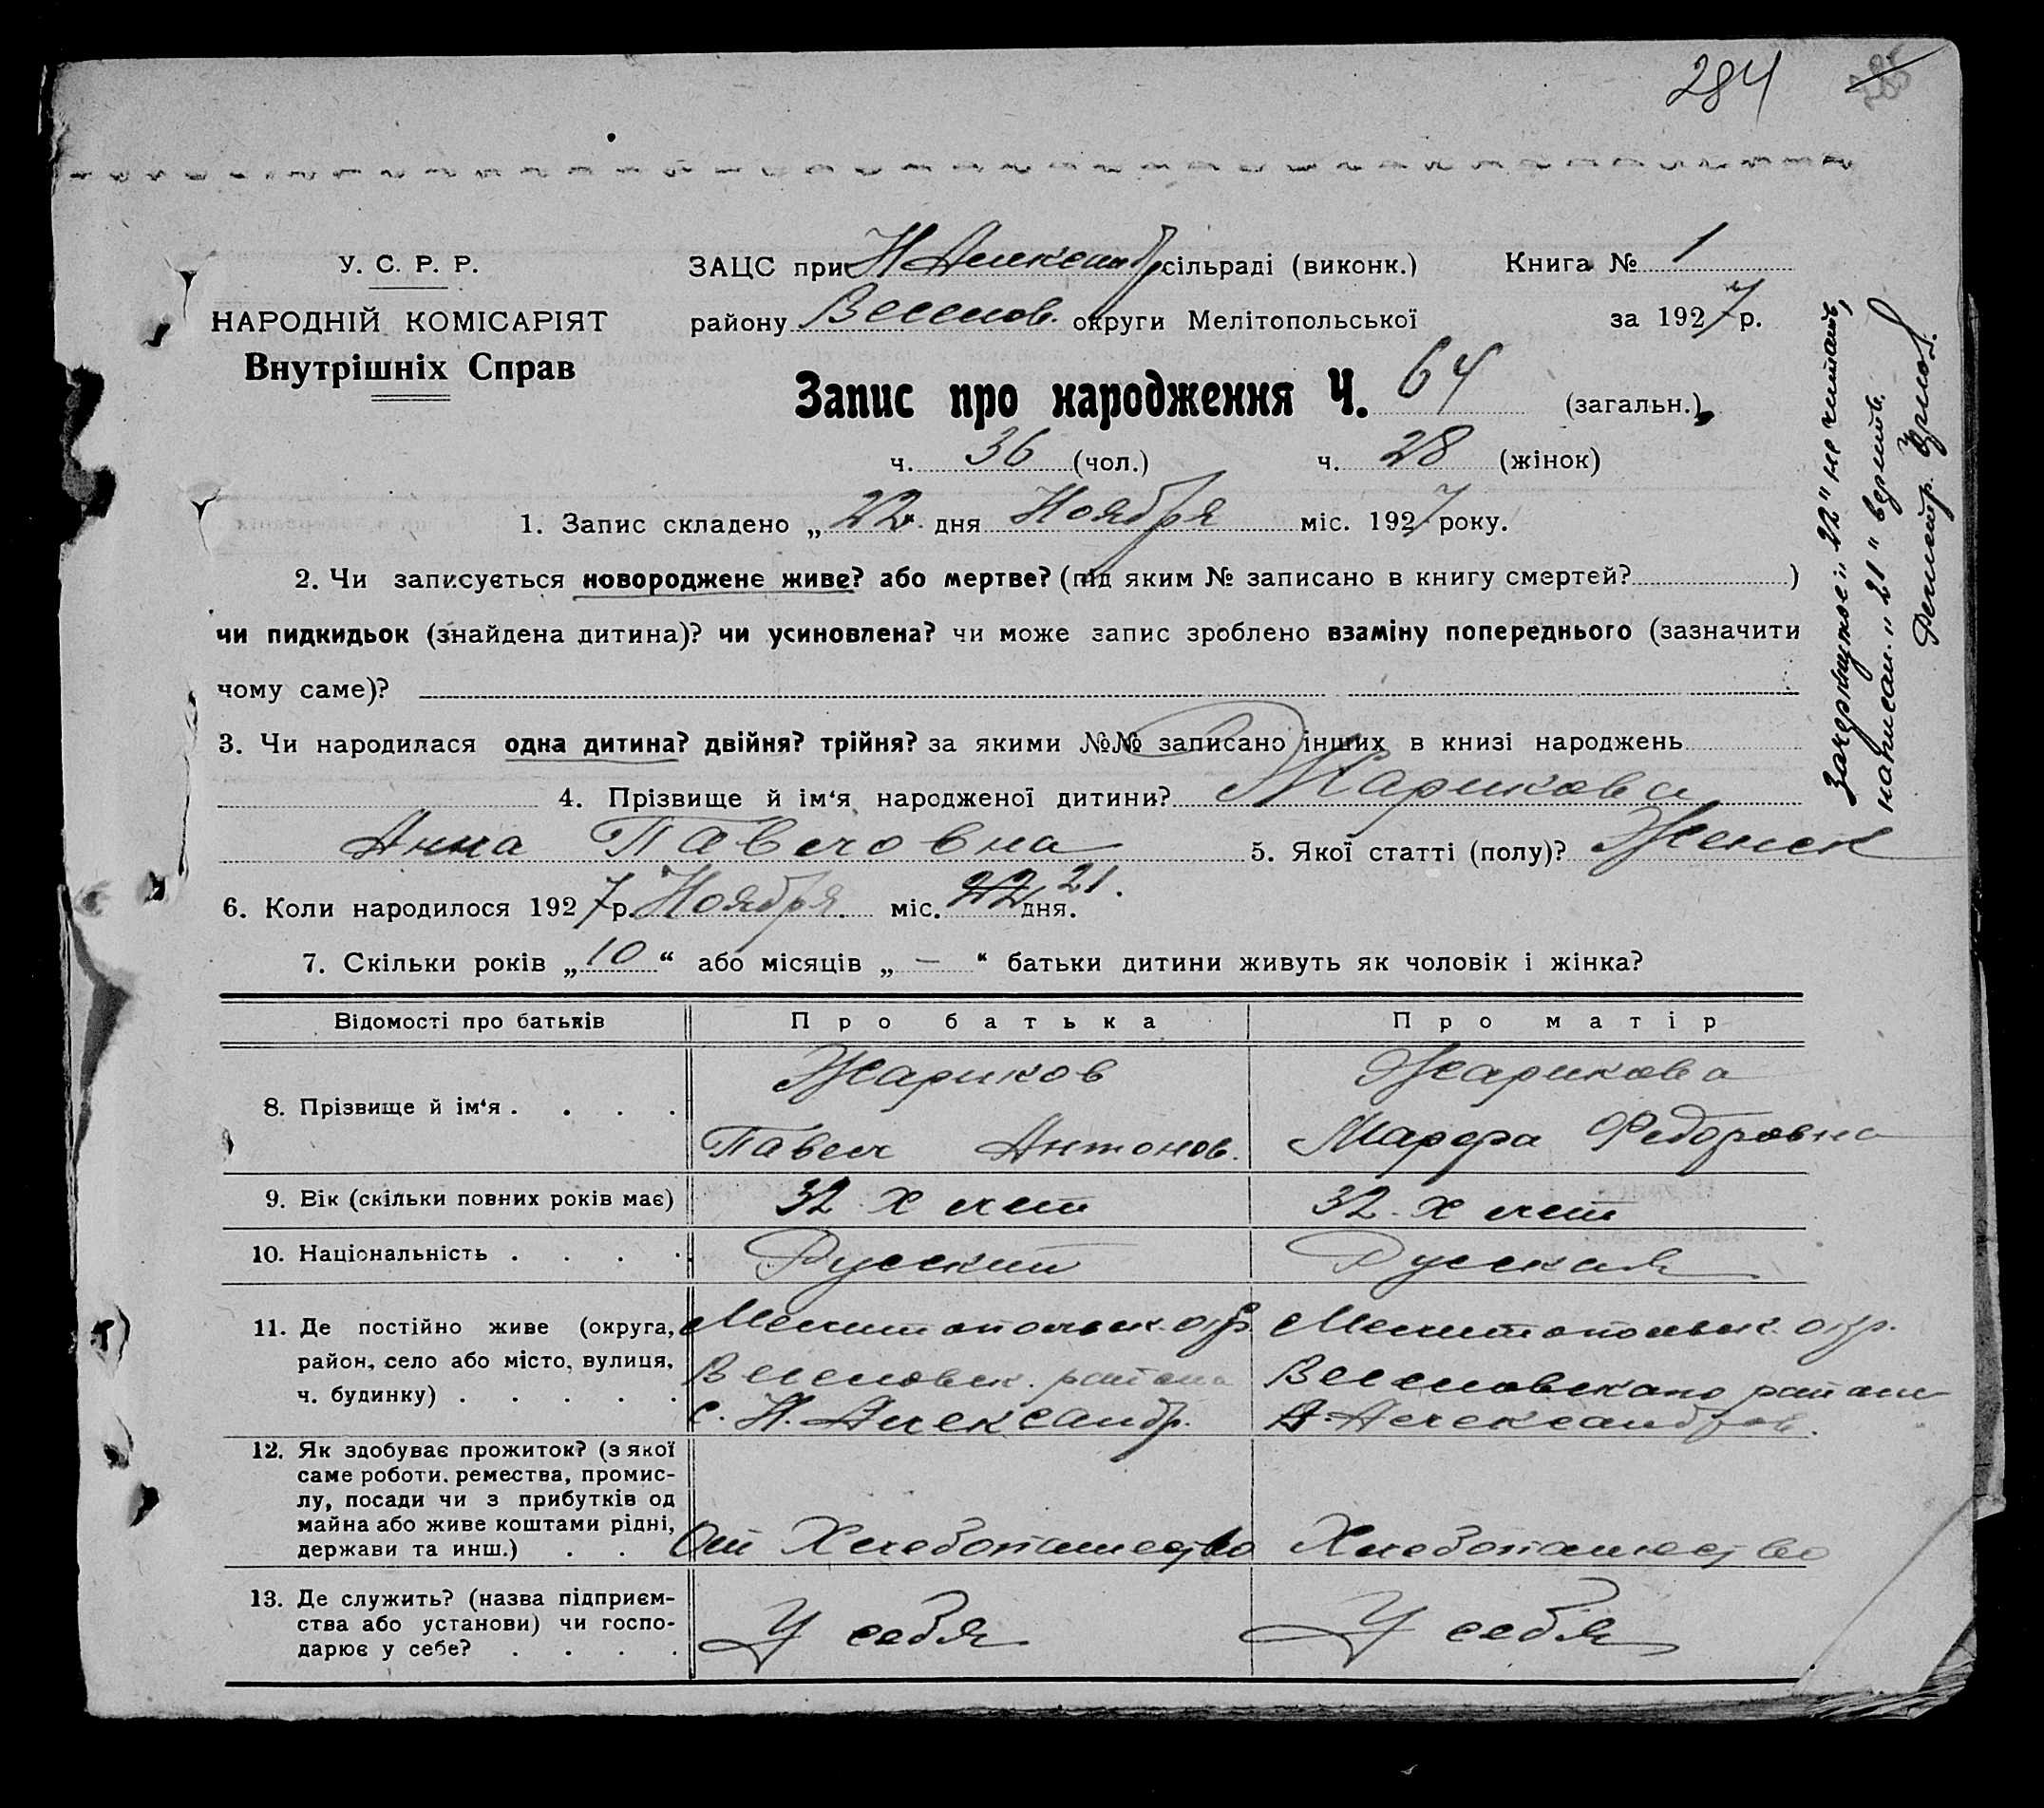 284
У. С. Р. Р.
НАРОДНІЙ КОМІСАРІЯТ
Внутрішніх Справ
ЗАЦС при Н Александр сільраді (виконк.) Книга № 1
району Веселов. округи Мелітопольської за 1927 р.
Запис про народження Ч. 64 (загальн.),
ч. 36 (чол.) ч. 28 (жінок)
1. Запис складено „ 22 дня Ноября міс. 1927 року.
2. Чи записується новороджене живе? або мертве? (під яким № записано в книгу смертей? )
чи пидкидьок (знайдена дитина)? чи усиновлена? чи може запис зроблено взаміну попереднього (зазначити
чому саме)?
3. Чи народилася одна дитина? двійня? трійня? за якими №№ записано інших в книзі народжень
4. Прізвище й ім‘я народженої дитини? Жарикова
Анна Павловна 5. Якої статті (полу)? Женск
6. Коли народилося 1927 р. Ноября. міс. 22 21. дня.
7. Скільки років „ 10 “ або місяців „ — “ батьки дитини живуть як чоловік і жінка?
Відомості про батьків Про батька Про матір
8. Прізвище й ім‘я . . . . Жариков Павел Антонов. Жарикова Марфа Федоровна
9. Вік (скільки повних років має) 32 х лет 32 х лет
10. Національність . . . . Русский Русская
11. Де постійно живе (округа, Мелитопольск. окр. Мелитопольск. окр.
район, село або місто, вулиця, Веселовск. района Веселовскаго района
ч. будинку) . . . . . с. Н. Александр. Н. Александров.
12. Як здобуває прожиток? (з якої
саме роботи, ремества, промис-
лу, посади чи з прибутків од
майна або живе коштами рідні,
держави та инш.) . . От Хлебопашество Хлебопашество
13. Де служить? (назва підприєм-
ства або установи) чи госпо-
дарює у себе? . . . . У себя У себя
Зачеркнутое „22" не читать,
написан. „21" верить.
Регистр.